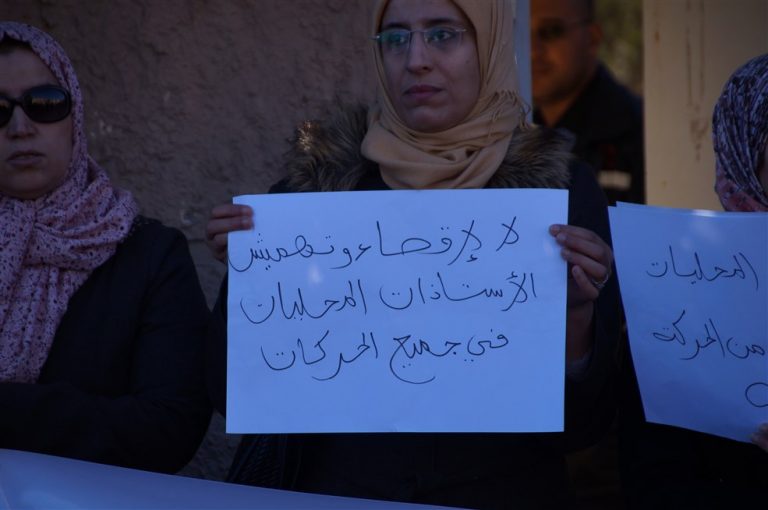 لا لإقصاء وتهميش
الأستاذات المحليات
في جميع الحركات
المحليات
من الحركة